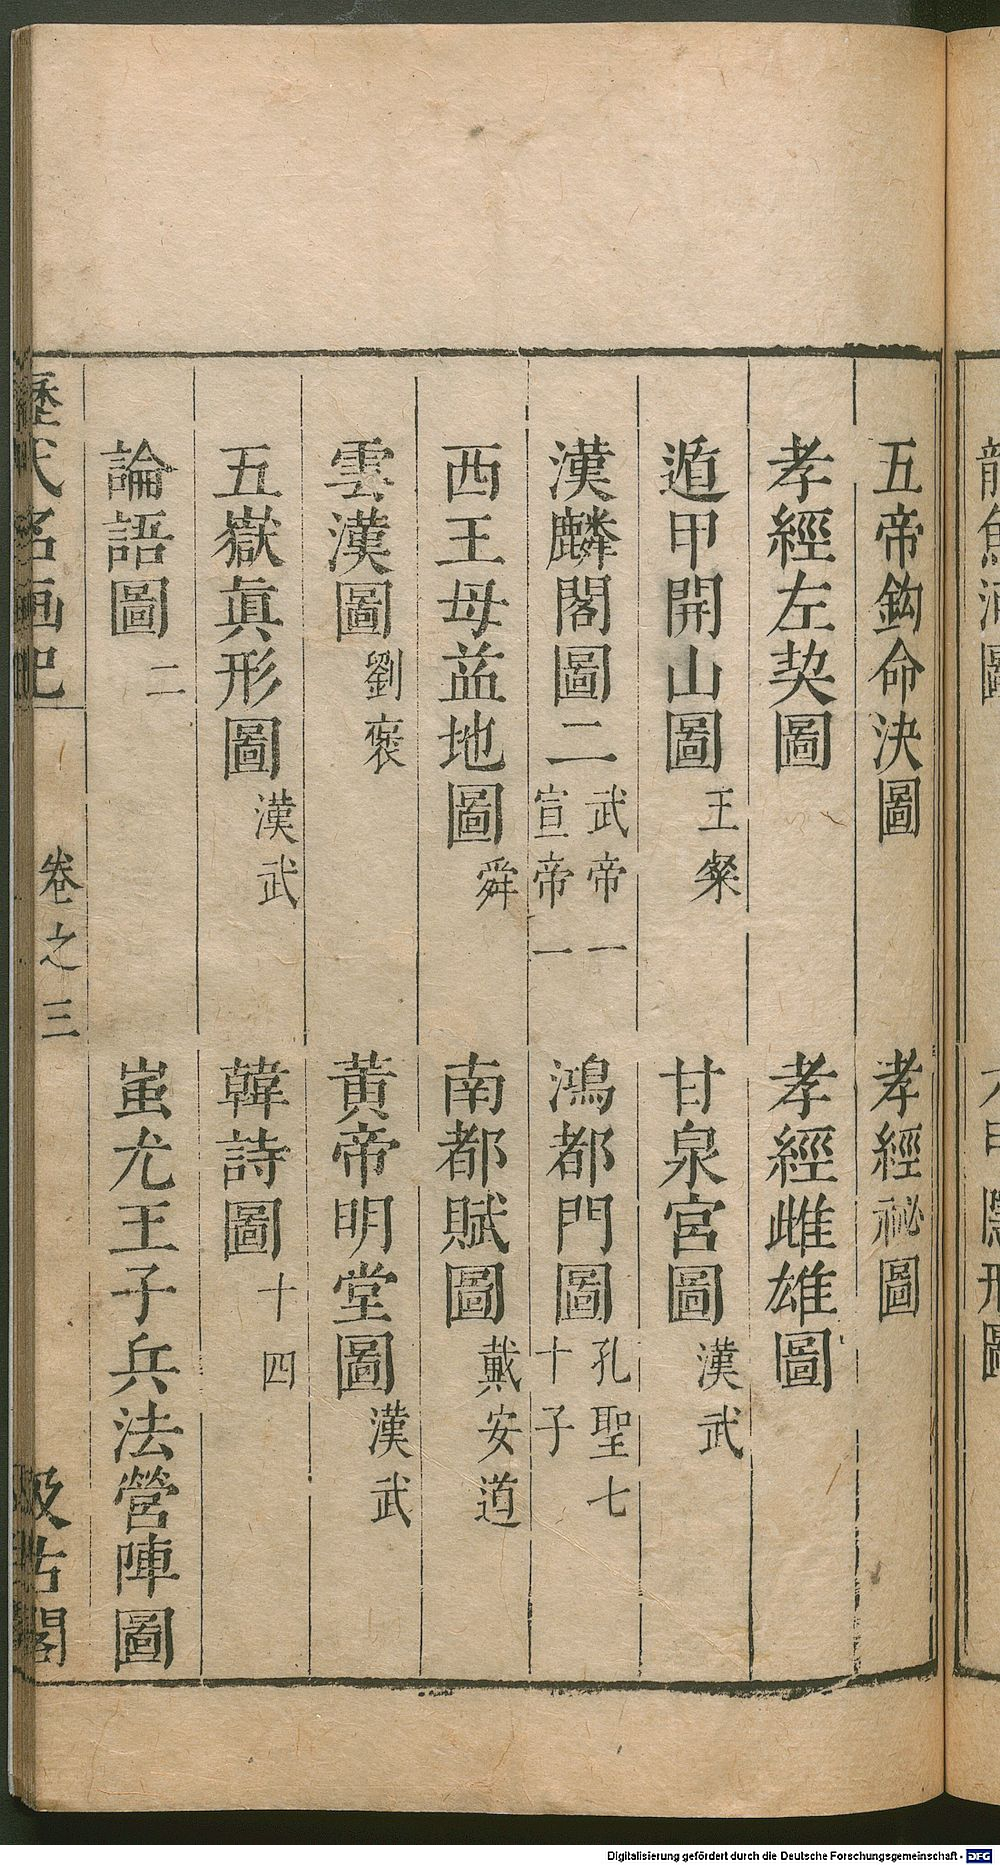 五帝鈎命決圖　孝經祕圖
孝經左契圖　孝經雌雄圖
遁甲開山圖 王粲　甘泉宮圖 漢武
漢麟閣圖二 武帝一 宣帝一　鴻都門圖 孔聖七 十子
西王母益地圖 舜　南都賦圖 戴安道
雲漢圖 劉褒　黃帝明堂圖 漢武
五嶽眞形圖 漢武　韓詩圖 十四
論語圖 二　蚩尤王子兵法營陣圖
歷代名画记 卷之三 汲古閣
Digitalisierung gefördert durch die Deutsche Forschungsgemeinschaft - DFG